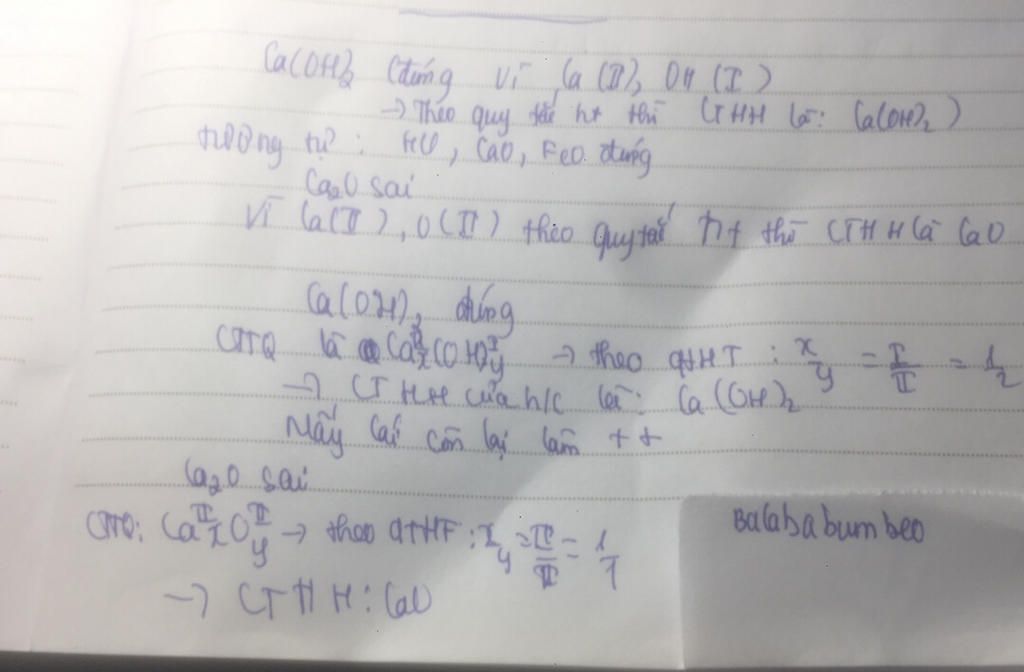 Ca(OH)2 (đúng vì Ca (II), OH (I)
→ Theo quy tắc ht thì CTHH là: Ca(OH)2)
tương tự: HCl, CaO, FeO đúng
Ca2O sai
Vì Ca(II), O(II) theo quy tắc ht thì CTHH là CaO
Ca(OH)2 đúng
CTTQ là Ca^II x (OH)^I y → theo QTHT: x/y = I/II = 1/2
→ CTHH của h/c là: Ca(OH)2
Mấy cái còn lại làm tt
Ca2O sai
CTTQ: Ca^II x O^II y → theo QTHT: x/y = II/II = 1/1
→ CTHH: CaO
Balababumbeo